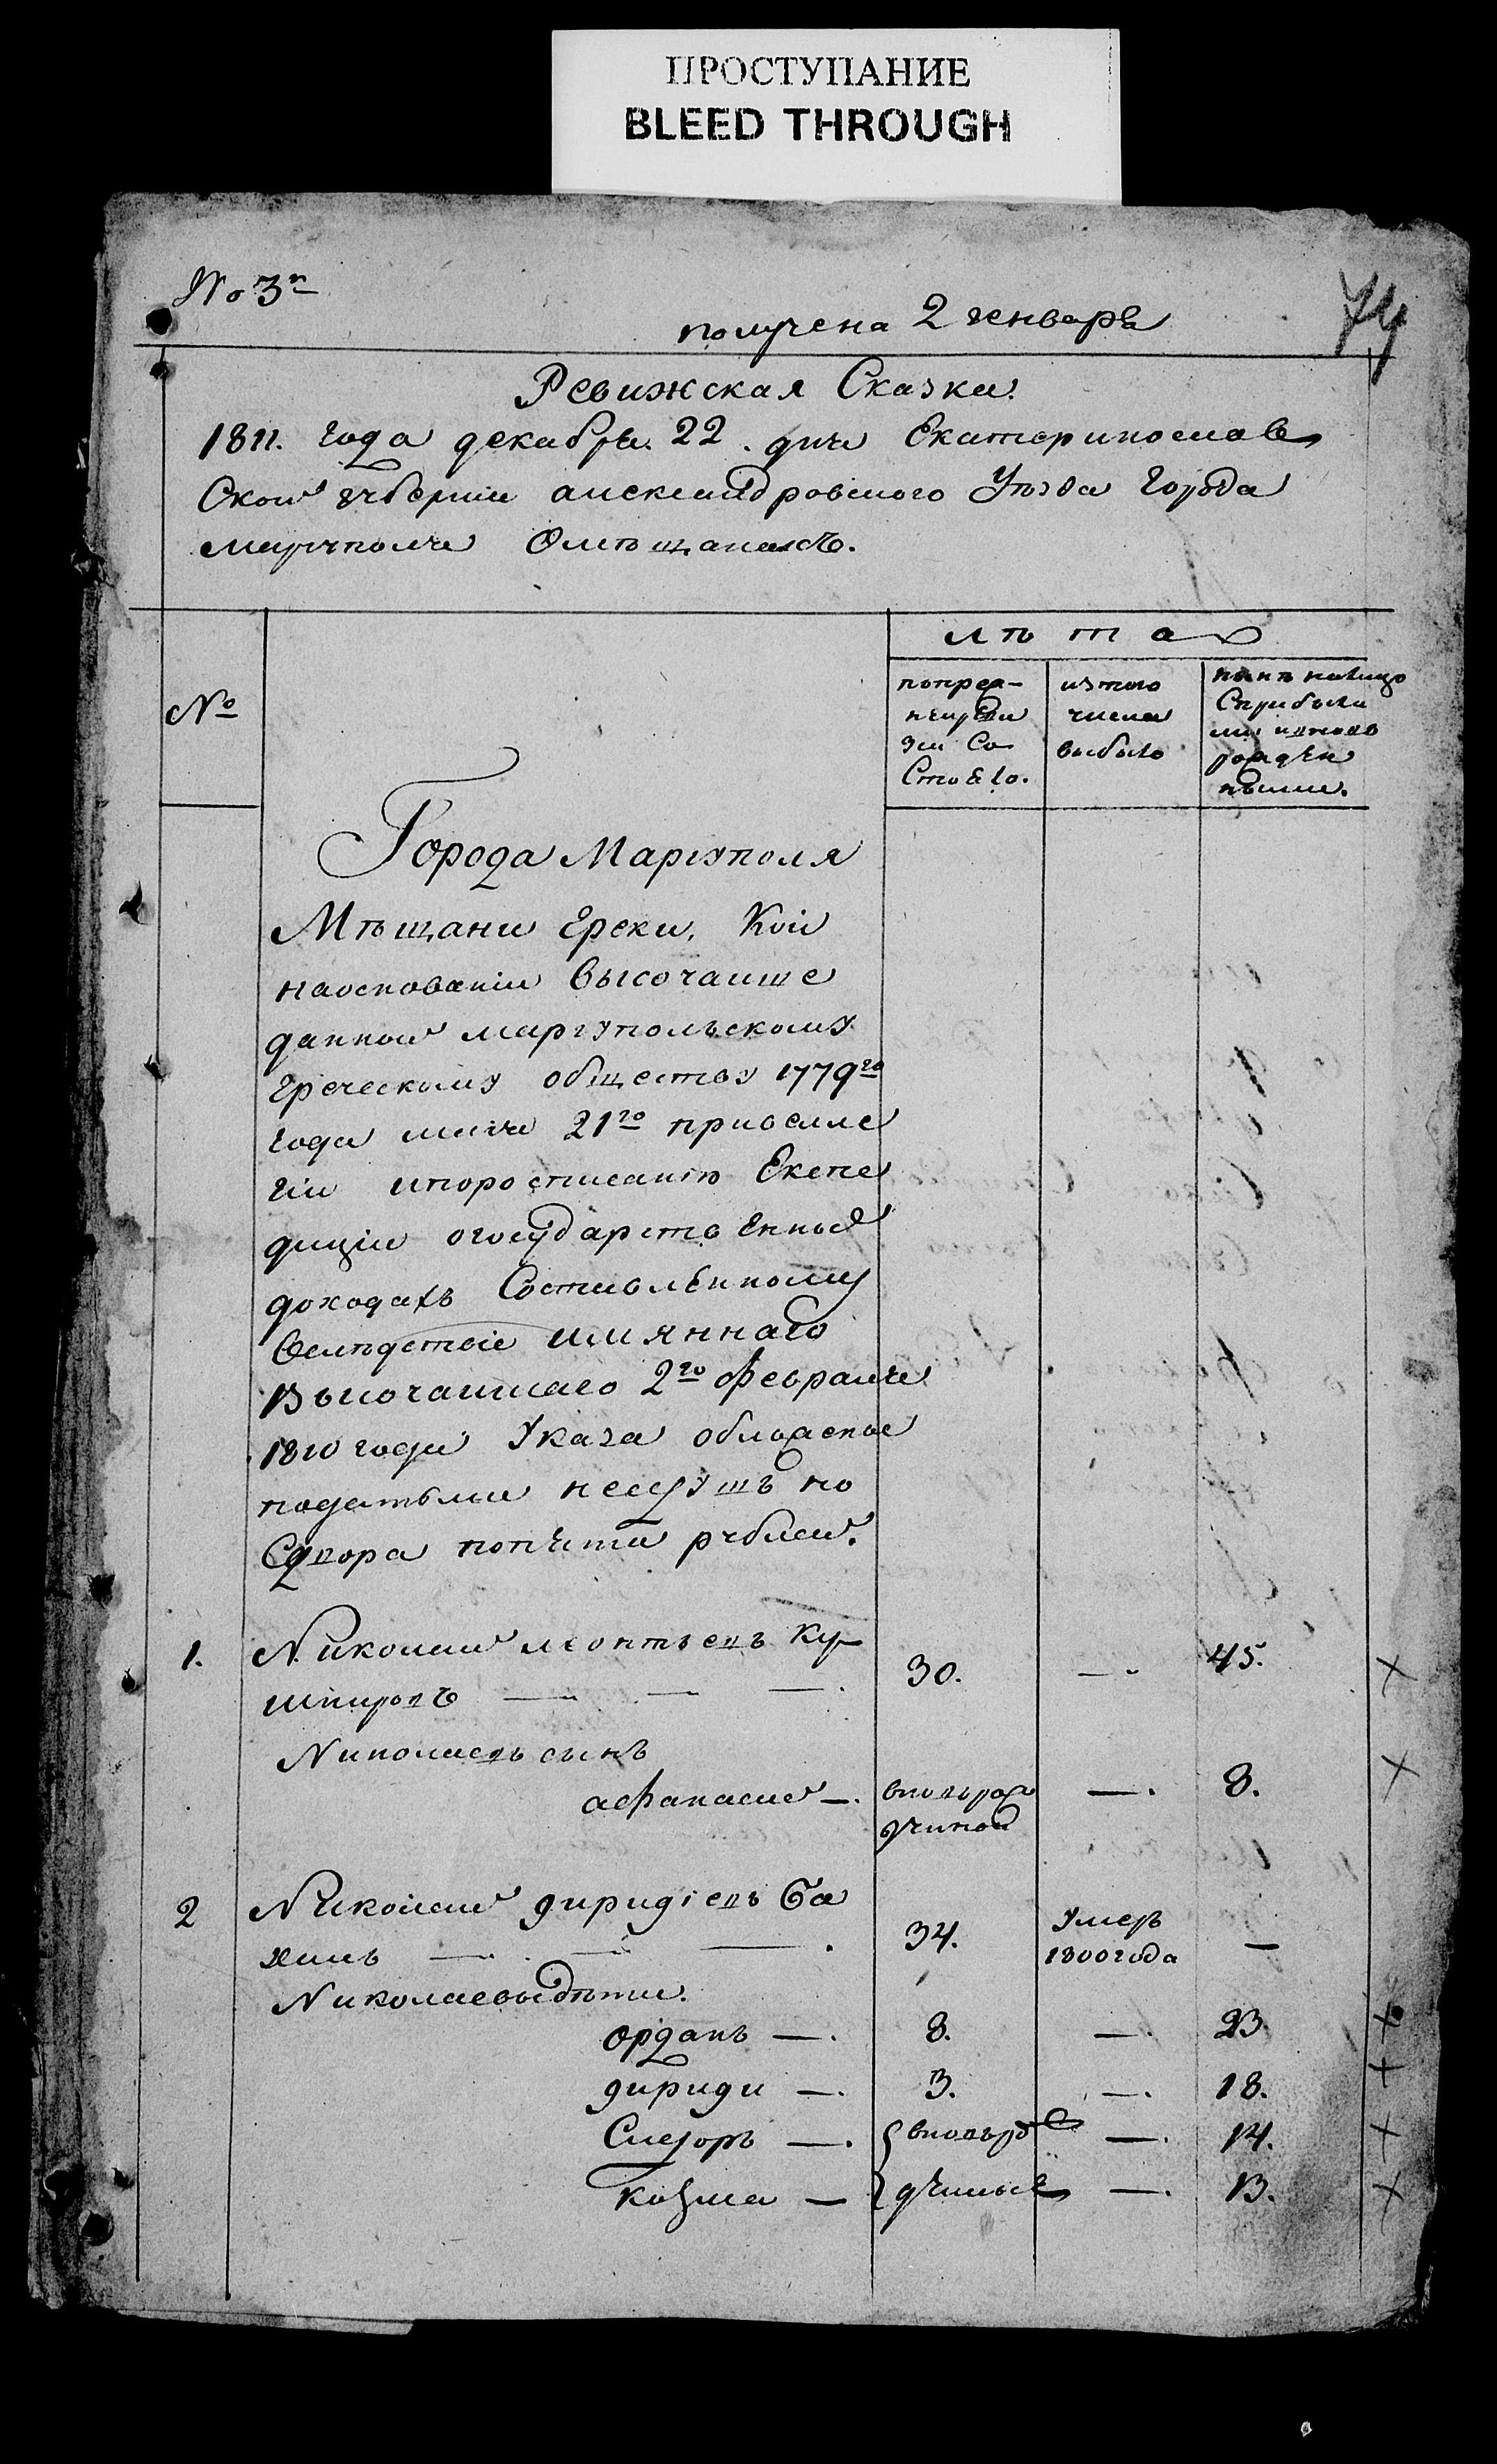 ПРОСТУПАНИЕ
BLEED THROUGH
№ 3й
74
получена 2 генваря
Ревижская Сказка.
1811. года декабря. 22. дня Екатеринослав
Ской губернии александровского Уѣзда города
мариуполя Омѣщанахъ.
№
лѣта
попред-
нейреви
зии Со
Стояло.
изтого
числа
выбыло
нынѣ налицо
Сприбыли
ми ивновь
рожден
ными.
Города Мариуполя
Мѣщани Греки, Кои
наоснованіи высочаише
даннои мариупольскому
греческому обществу 1779го
года маия 21го привеле
гіи ипоросписанію Експе
диціи огосударственныхъ
доходахъ Составленному
вслѣдствіе имяннаго
Высочаишаго 2го февраля
1810 года Указа обложенные
податьми несущъ по
Сдвора попяти рублей.
1.
Николаи леонтьевъ Ку
шнировъ — — —.
30.
—
45.
Николаевъ сынъ
афанасий —.
вновьрож
дчинои
—.
8.
2
Николаи диридіевъ Ба
хчи — — —.
34.
Умеръ
1800 года
—
Николаевыдѣти.
орданъ —.
8.
—.
23.
дириди —.
3.
—.
18.
Слезоръ —.
вновьрож
—.
14.
козма —
дчиные
—.
13.